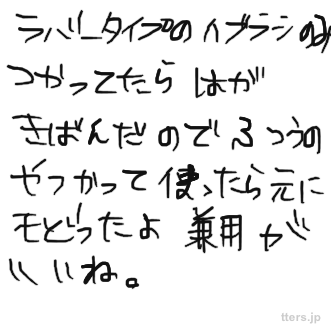 ラバータイプのハブラシのみ
つかってたら はが
きばんだのでふつうの
やつかって使ったら元に
モどったよ 兼用が
いいね。
tters.jp